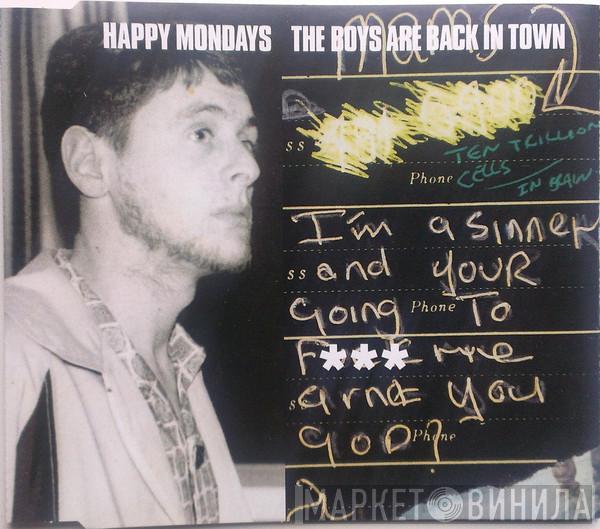 HAPPY MONDAYS THE BOYS ARE BACK IN TOWN
mams
ss
TEN TRILLION
Phone CELLS
IN BRAIN
I'm a sinner
ss and your
going Phone To
F***E me
s arnt you
GOD? Phone
МАРКЕТ ВИНИЛА